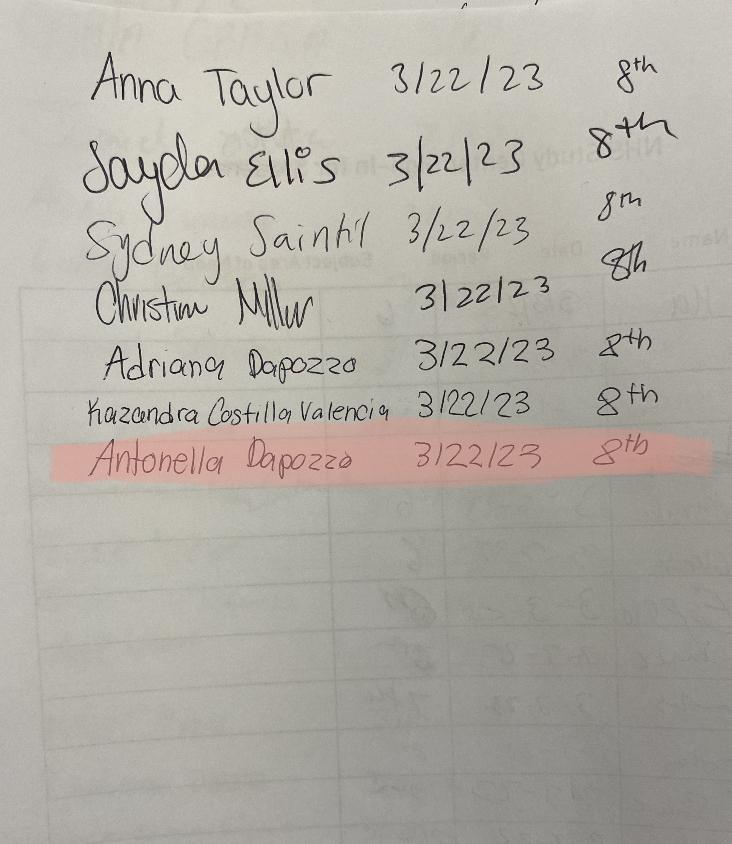 Anna Taylor 3/22/23 8th
Jayda Ellis 3/22/23 8th
Sydney Saintil 3/22/23 8th
Christine Miller 3/22/23 8th
Adriana Dapozzo 3/22/23 8th
Kazandra Costilla Valencia 3/22/23 8th
Antonella Dapozzo 3/22/23 8th